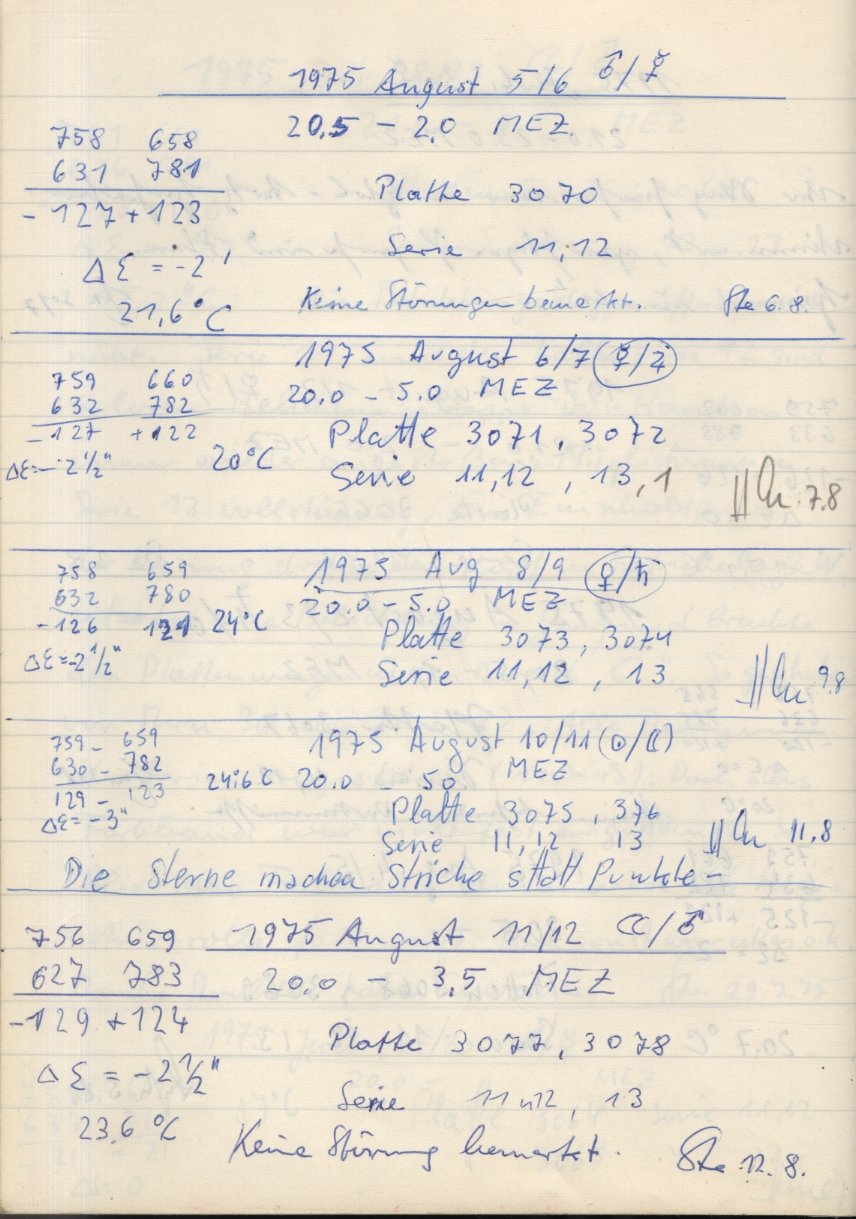 1975 August 5/6 ♂/☿
758 658 20,5 - 2,0 MEZ
631 781
-127 +123 Platte 3070
Serie 11,12
Δε = -2'
21,6°C Keine Störungen bemerkt. Ste 6.8.
1975 August 6/7 (☿/♃)
759 660 20.0 - 5.0 MEZ
632 782
-127 +122 Platte 3071, 3072
Δε=-2 1/2" 20°C Serie 11,12, 13,1 7.8
1975 Aug 8/9 (♀/♄)
758 659 20.0 - 5.0 MEZ
632 780
-126 121 24°C Platte 3073, 3074
Δε=-2 1/2" Serie 11,12, 13 9.8
1975 August 10/11 (⊙/☾)
759 - 659
630 - 782 24:6C 20.0 - 50 MEZ
129 - 123 Platte 3075, 376
Δε= -3" Serie 11,12 13 11.8
Die Sterne machen Striche sttatt Punkte -
756 659 1975 August 11/12 ☾/♂
627 783 20.0 - 3,5 MEZ
-129 +124
Platte 3077, 3078
Δε = -2 1/2"
Serie 11 u 12, 13
23,6 °C
Keine Störung bemerkt. Ste 12.8.